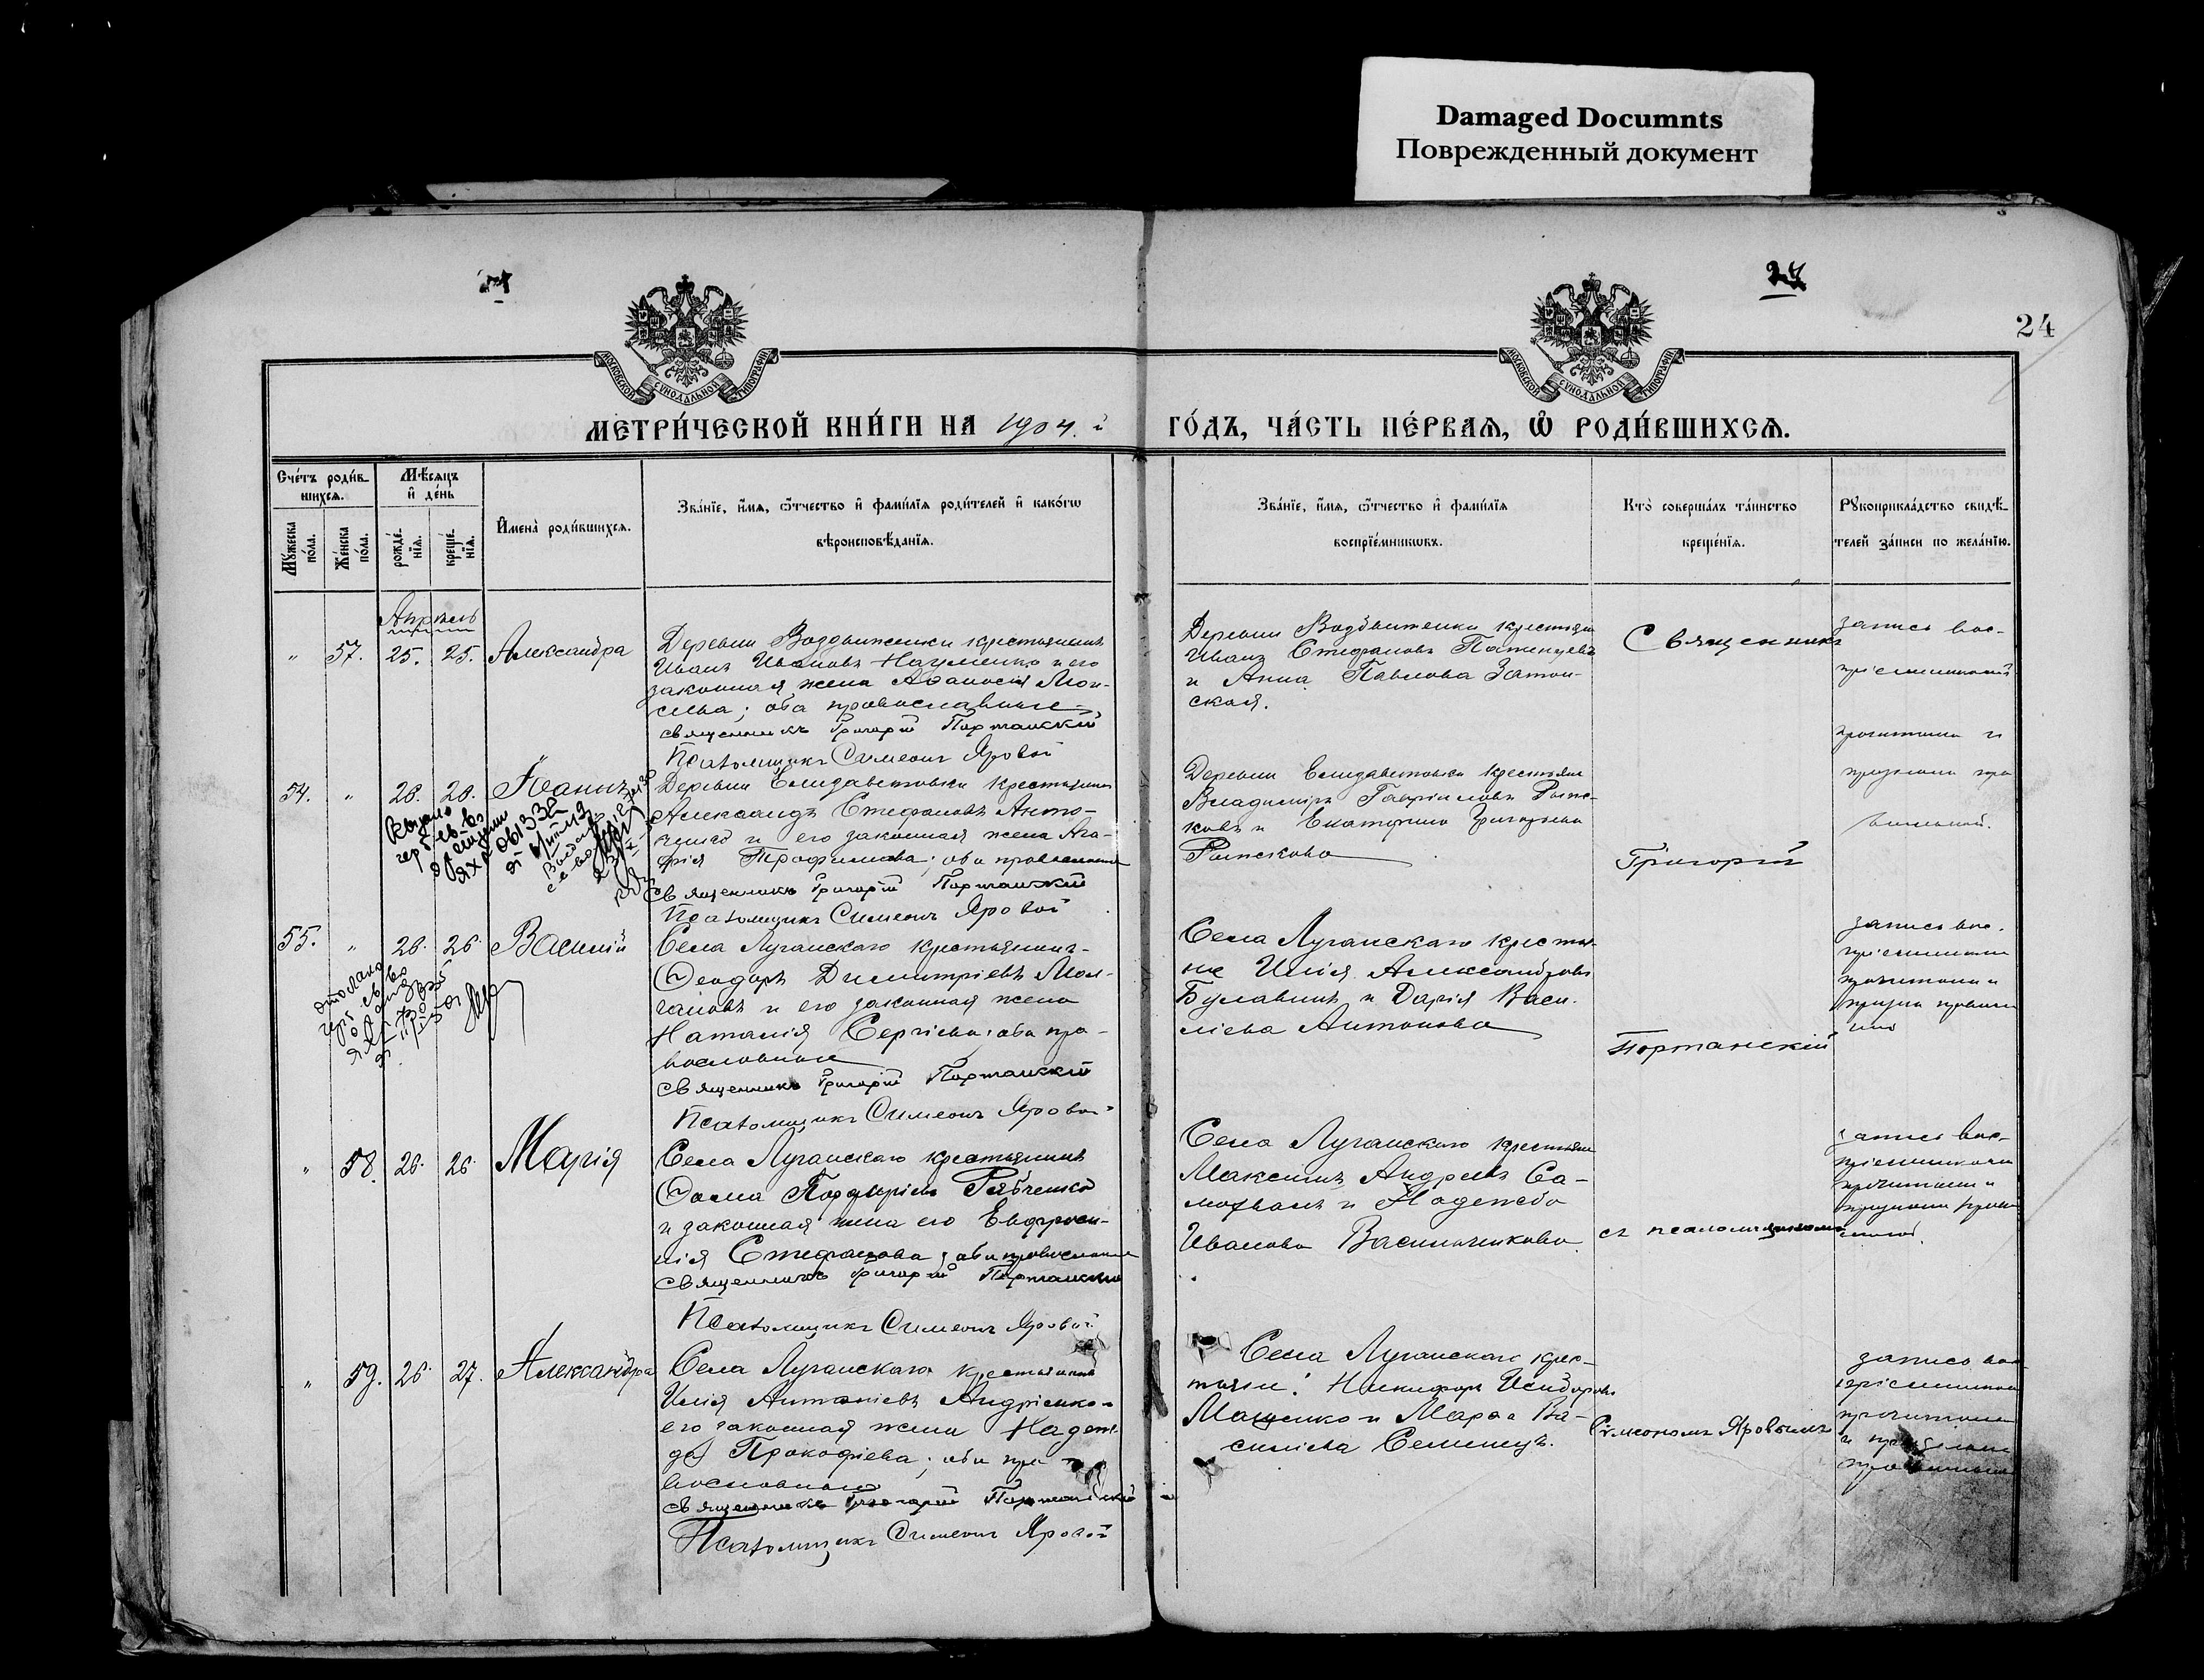 Damaged Documnts
Поврежденный документ
24
24
МОСКОВСКОЙ СУНОДАЛЬНОЙ ТИПОГРАФІИ
МОСКОВСКОЙ СУНОДАЛЬНОЙ ТИПОГРАФІИ
МЕТРИ́ЧЕСКОЙ КНИ́ГИ НА 1904.й ГО́ДЪ, ЧА́СТЬ ПЕ́РВАѦ, Ѡ҆ РОДИ́ВШИХСѦ.
Сче́тъ роди́в-
шихсѧ.
Мѣ́сѧцъ
и҆ де́нь
Мꙋ́жеска по́ла.
Же́нска по́ла.
рожде́-
нїѧ.
креще́-
нїѧ.
И҆мена̀ роди́вшихсѧ.
Зва́нїе, и҆́мѧ, ѻ҆́тчество и҆ фами́лїѧ роди́телей и҆ како́гѡ
вѣроисповѣ́данїѧ.
Зва́нїе, и҆́мѧ, ѻ҆́тчество и҆ фами́лїѧ
воспрїе́мникѡвъ.
Кто̀ соверша́лъ та́инство
креще́нїѧ.
Рꙋкоприкла́дство свидѣ́-
телей за́писи по жела́нїю.
Апрѣль
" 57. 25. 25. Александра
Деревни Воздвиженки крестьянинъ
Иванъ Ивановъ Науменко и его
законная жена Афанасія Мои-
сеева; оба православные
священникъ Григорій Портанскій
Псаломщикъ Симеонъ Яровой
Деревни Воздвиженки крестьяне
Иванъ Стефановъ
и Анна Павлова Затон-
ская.
Священникъ
запись вос-
пріемниками
прочитана и
признана пра
вильной.
54. " 26. 26. Іоаннъ
Деревни Елизаветовки крестьянинъ
Александръ Стефановъ Анто-
и его законная жена Ага-
фія Трофимова; оба православные
Священникъ Григорій Портанскій
Псаломщикъ Симеонъ Яровой
Деревни Елизаветовки крестьяне
Владиміръ Гавріиловъ
ковъ и Екатерина Григорьева
Григорій
55. " 26. 26. Василій
Села Луганскаго крестьянинъ
Ѳеодоръ Димитріевъ Мол-
чановъ и его законная жена
Наталія Сергіева; оба пра-
вославные
Священникъ Григорій Портанскій
Псаломщикъ Симеонъ Яровой
Села Луганскаго крестья-
не Илія Александровъ
Булавинъ и Дарія Васи-
ліева Антонова
Портанскій
запись вос-
пріемниками
прочитана и
" 58. 26. 26. Марія
Села Луганскаго крестьянинъ
Ѳома Порфиріевъ Рябченко
и законная жена его Евфроси-
нія Стефанова; оба православные
Священникъ Григорій Портанскій
Псаломщикъ Симеонъ Яровой
Села Луганскаго крестьяне
Максимъ Андреевъ Са-
мохвалъ и Надежда
Иванова Васильченкова
съ псаломщикомъ
запись вос-
пріемниками
прочитана и
" 59. 26. 27. Александра
Села Луганскаго крестьянинъ
Илія Антоніевъ Андріенко и
его законная жена Надеж-
да Прокофіева; оба пра-
вославные
Священникъ Григорій Портанскій
Псаломщикъ Симеонъ Яровой
Села Луганскаго крес-
тьяне: Никифоръ Исидоровъ
Мащенко и Марѳа Ва-
силіева Семенецъ.
Симеономъ Яровымъ
запись вос-
пріемниками
прочитана